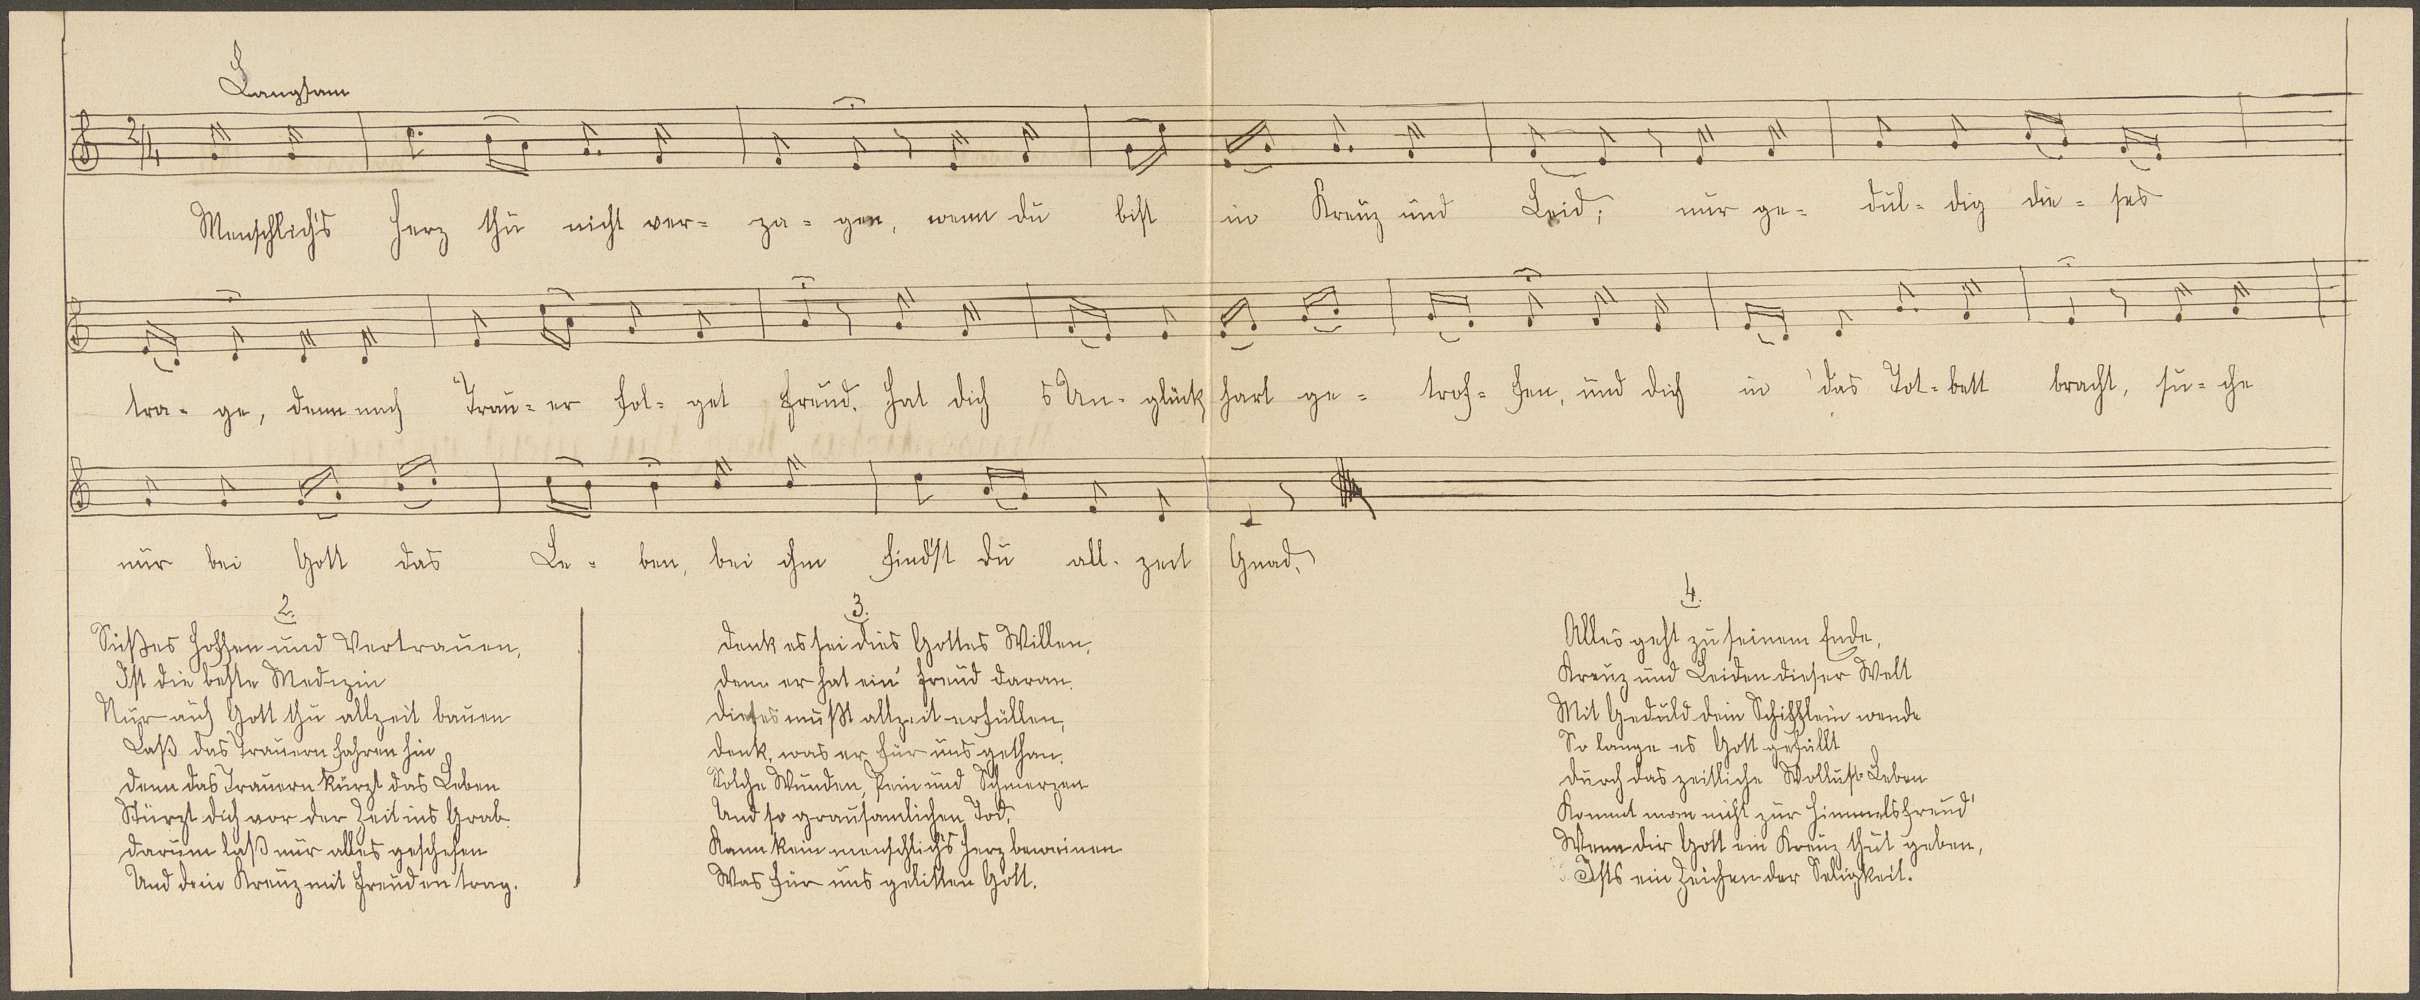 Langsam
2/4
Menschlich's Herz thu nicht ver- za- gen, wenn du bist in Kreuz und Leid; nur ge- dul- dig die- ses
tra- ge, denn nach Trau- er fol- get Freud. Hat dich s'Un- glück hart ge- trof- fen, und dich in das Tot- bett bracht, su- che
nur bei Gott das Le- ben, bei ihm find'st du all- zeit Gnad.
2.
Süßes Hoffen und Vertrauen,
Ist die beste Medizin
Nur auf Gott thu allzeit bauen
Laß das Trauern fahren hin
denn das Trauern kürzt das Leben
Stürzt dich vor der Zeit ins Grab
darum laß nur alles geschehen
Und dein Kreuz mit Freuden trag.
3.
denk es sei dies Gottes Willen,
denn er hat ein' Freud daran.
dieses mußt allzeit erfüllen,
denk, was er für uns gethan.
Solche Wunden, Pein und Schmerzen
Und so grausamlichen Tod,
Kann kein menschlich's Herz beweinen
Was für uns gelitten Gott.
4.
Alles geht zu seinem Ende,
Kreuz und Leiden dieser Welt
Mit Geduld dein Schifflein wende
So lange es Gott gefällt
durch das zeitliche Wollust Leben
Kommt man nicht zur Himmelsfreud'
Wenn dir Gott ein Kreuz thut geben,
Ists ein Zeichen der Seligkeit.